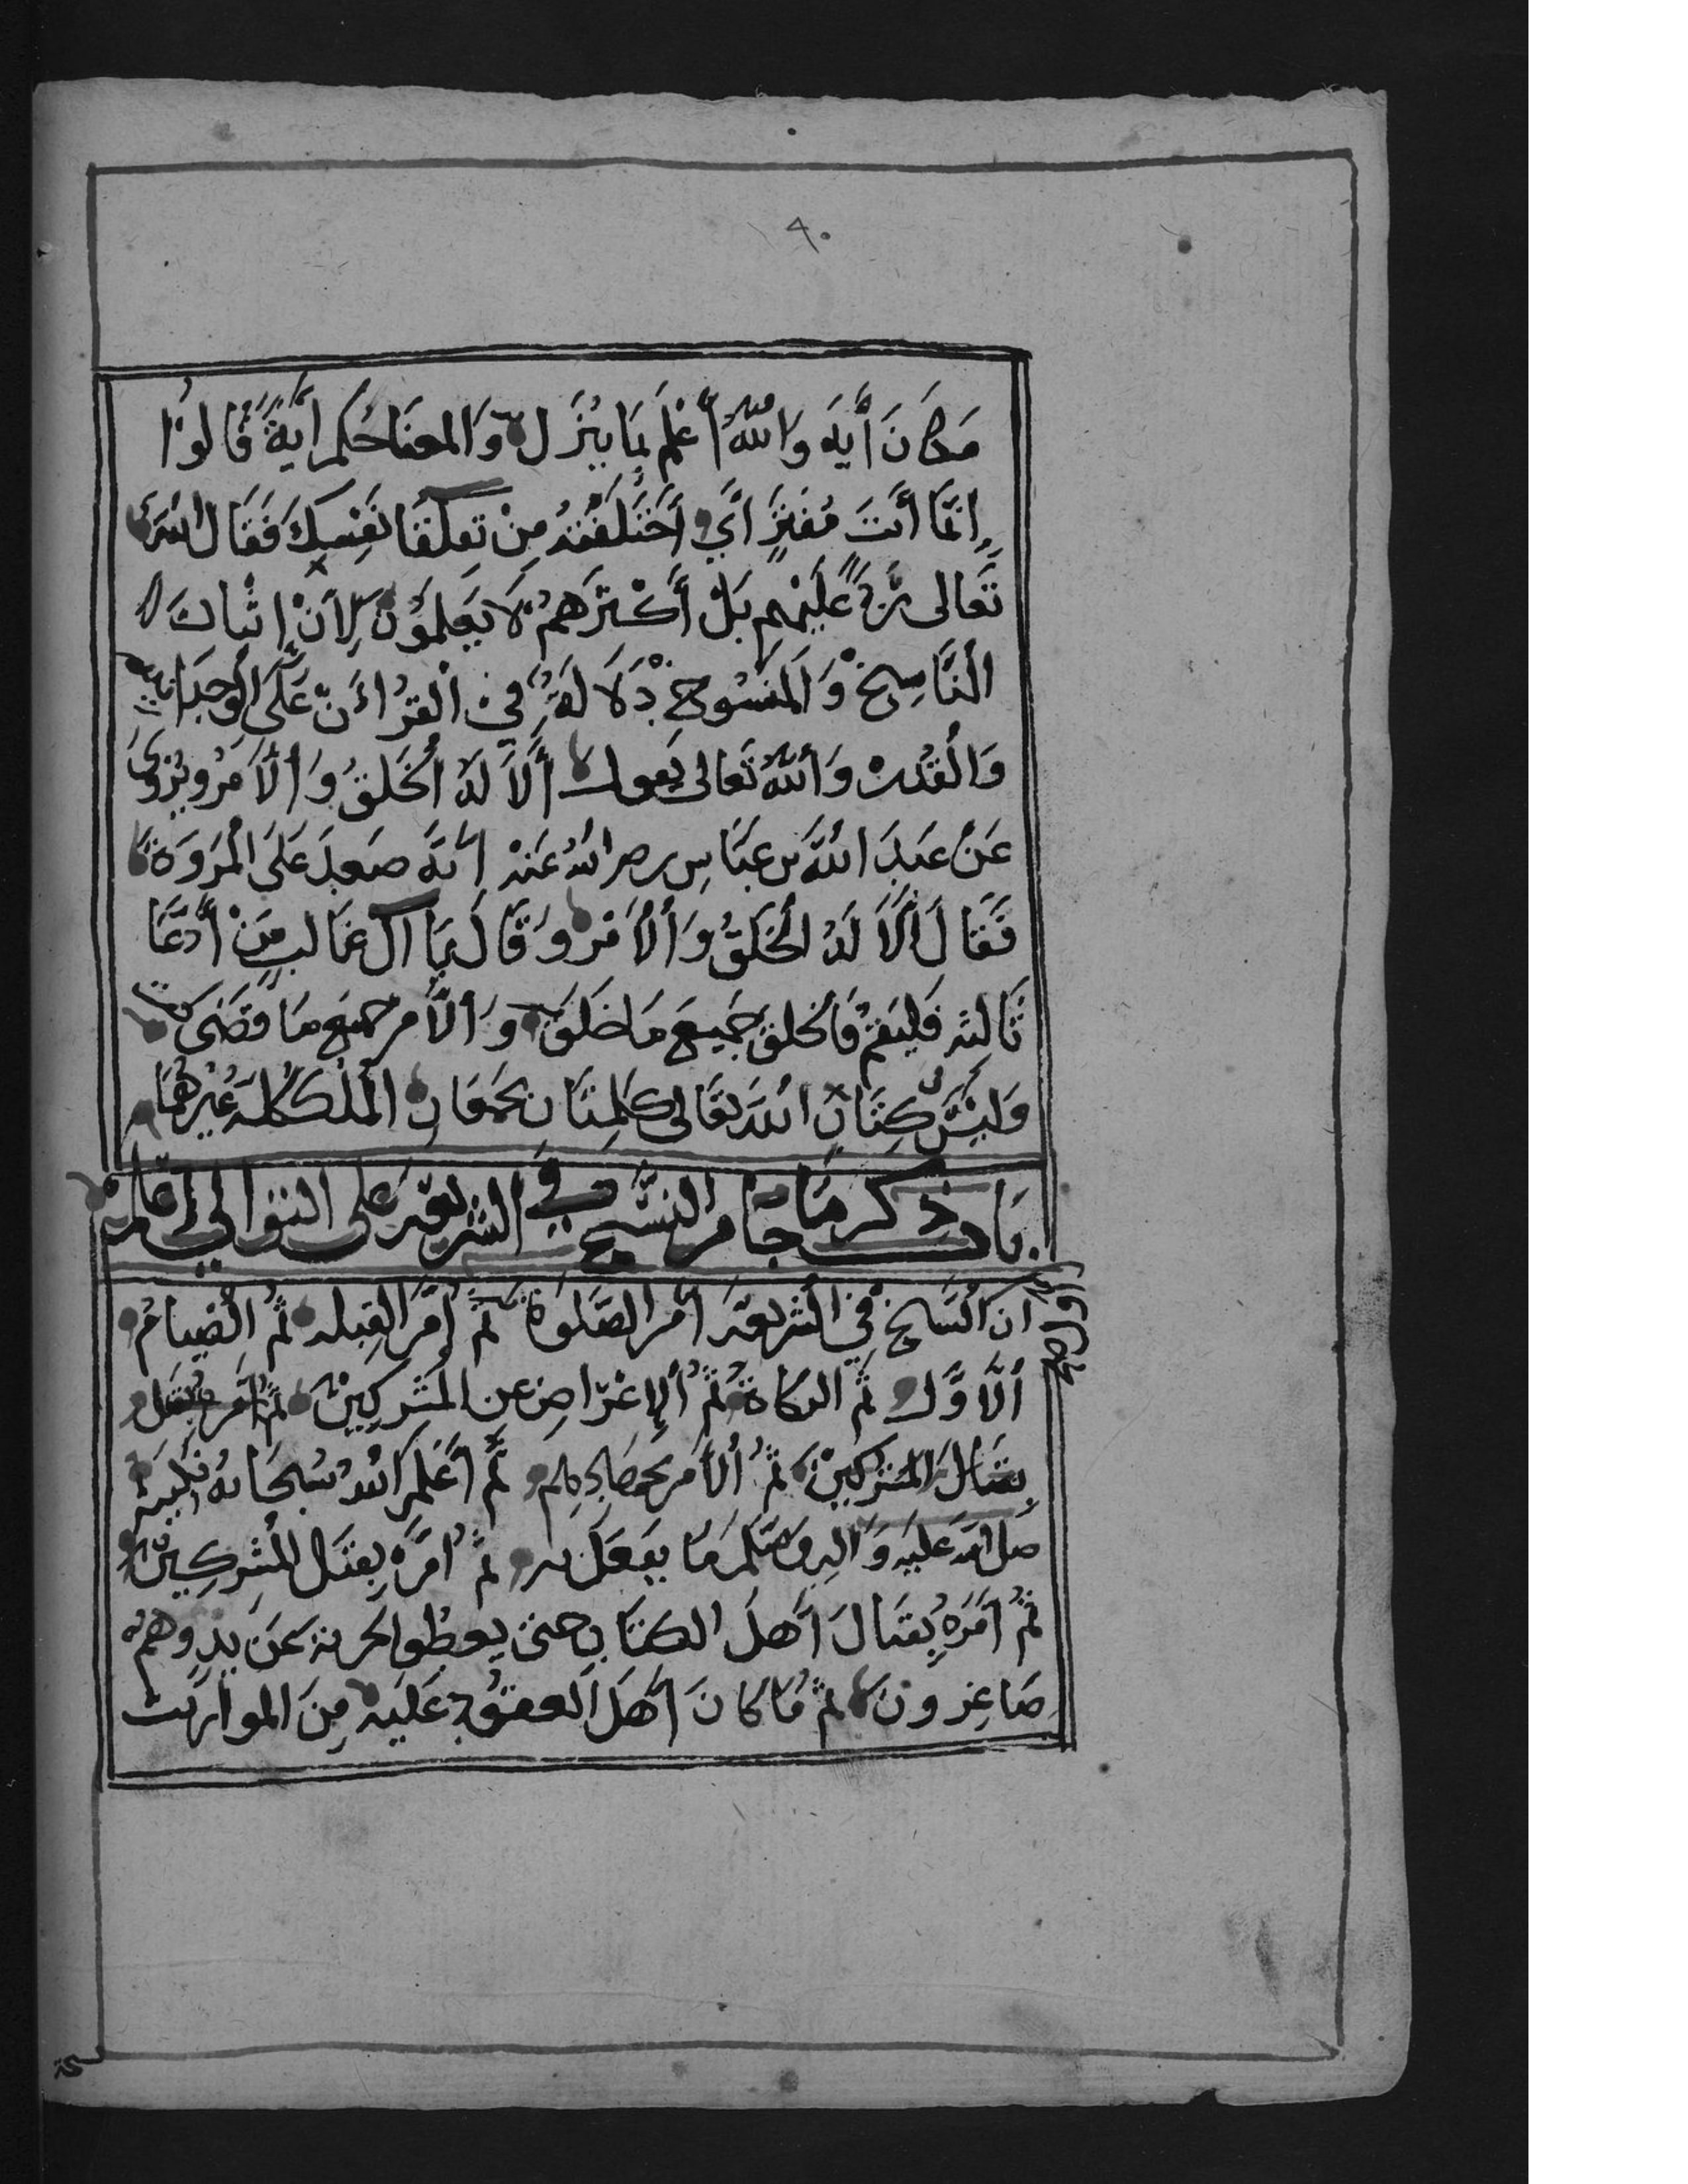 ٩٠
مَكَانَ أَيَه وَاللّٰهُ أَعْلَمُ بِمَا يُنَزَّل وَالمعنَا حُكم أيَةً قَالوُا
اِنَّمَا أَنَتَ مُفتَرٍ أَيَ أَخَتَلَقْتَهُ مِنْ تِعلَقَا نَفِسِكَ فَقَالَ اللهُ
تَعالى رَدًّا عَلَيْهِم بَلْ أَكْثَرَهمُ لَا يَعلموُنَ لِأَنْ إِثبات
النَّاسِخْ وَالَمَنسُوخ دْلَالَةً فيْ القُرْاءَنْ عَلَى الوَحِدَانيه
وَالُقدُرة وَاللهُ تَعالى يَقول أَلَا لَهُ الْخَلقُ وَالْأَمَرُ ويُروىَ
عَنْ عَبدِ اللهَ بن عبَاسِ رضى اللهُ عَنهُ انَهُ صَعِدَ عَلَى المَرَوَةَ
فَقَالَ أَلَا لَهُ الْخَلَقُ وَالْأَمَر وَقَالَ يَا آل غَالب مَنْ أَدَّعَا
ثَالثه فَليَقمُ فَالخلق جَميعَ مَا خلَقَ وَالْأَمر جميَع مَا قَضَى
وَليَسَ كِتَابْ اللهَ تعَالى كلمَتَانِ يجمَعَانِ المُلك كُلهَ غَيْرَهُمَا
بَاب ذكر مَا جَا من النسَّخ في الشريعَه عَلى التوَالي
أن النَّسَخْ فِي الشريعَة أمر الصَّلوَاة ثمُ أمَر القِبله ثمُ الْصيَامُ
ألَاوَّل ثمَ الزكاة ثُمُ الإِعْرَاض عن المُشركِينْ ثمُ أمَر
بِقتَال المُشركينْ ثمُ الأَمَر ثمَّ أَعلَمَ اللهُ سُبحَانهُ نَبيه
صلى الله عَليَه وَاله وسَلمَ مَا يَفعَل به ثمُ أمَرهُ بِقتَال المُشركِينْ
ثمُ أمَرَهُ بِقتَال أَهلَ الكتَاب حتى يعطُوا الجزية عَن يدٍ وَهمُ
صَاغِرُونَ ثمُ مَا كانَ أهَل العقوُد عَليَه مِنَ الموَاريَث